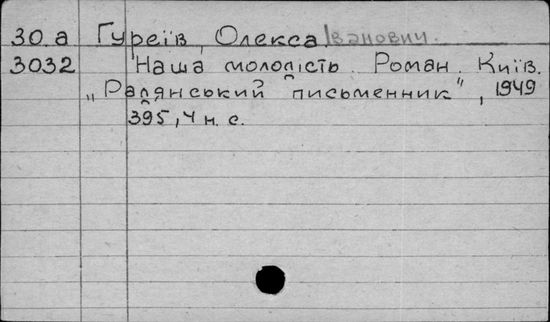 30.а Гуреїв, Олекса Іванович.
3032 Наша молодість. Роман. Київ.
„Радянський письменник", 1949
395,4 н. с.